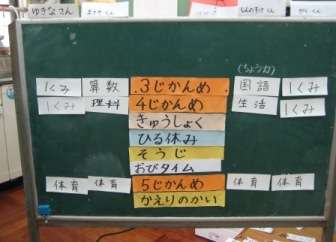 ゆきなさん
(ちょうか)
1くみ 算数 3じかんめ 国語 1くみ
1くみ 理科 4じかんめ 生活 1くみ
きゅうしょく
ひる休み
そうじ
おびタイム
体育 体育 5じかんめ 体育 体育
かえりのかい